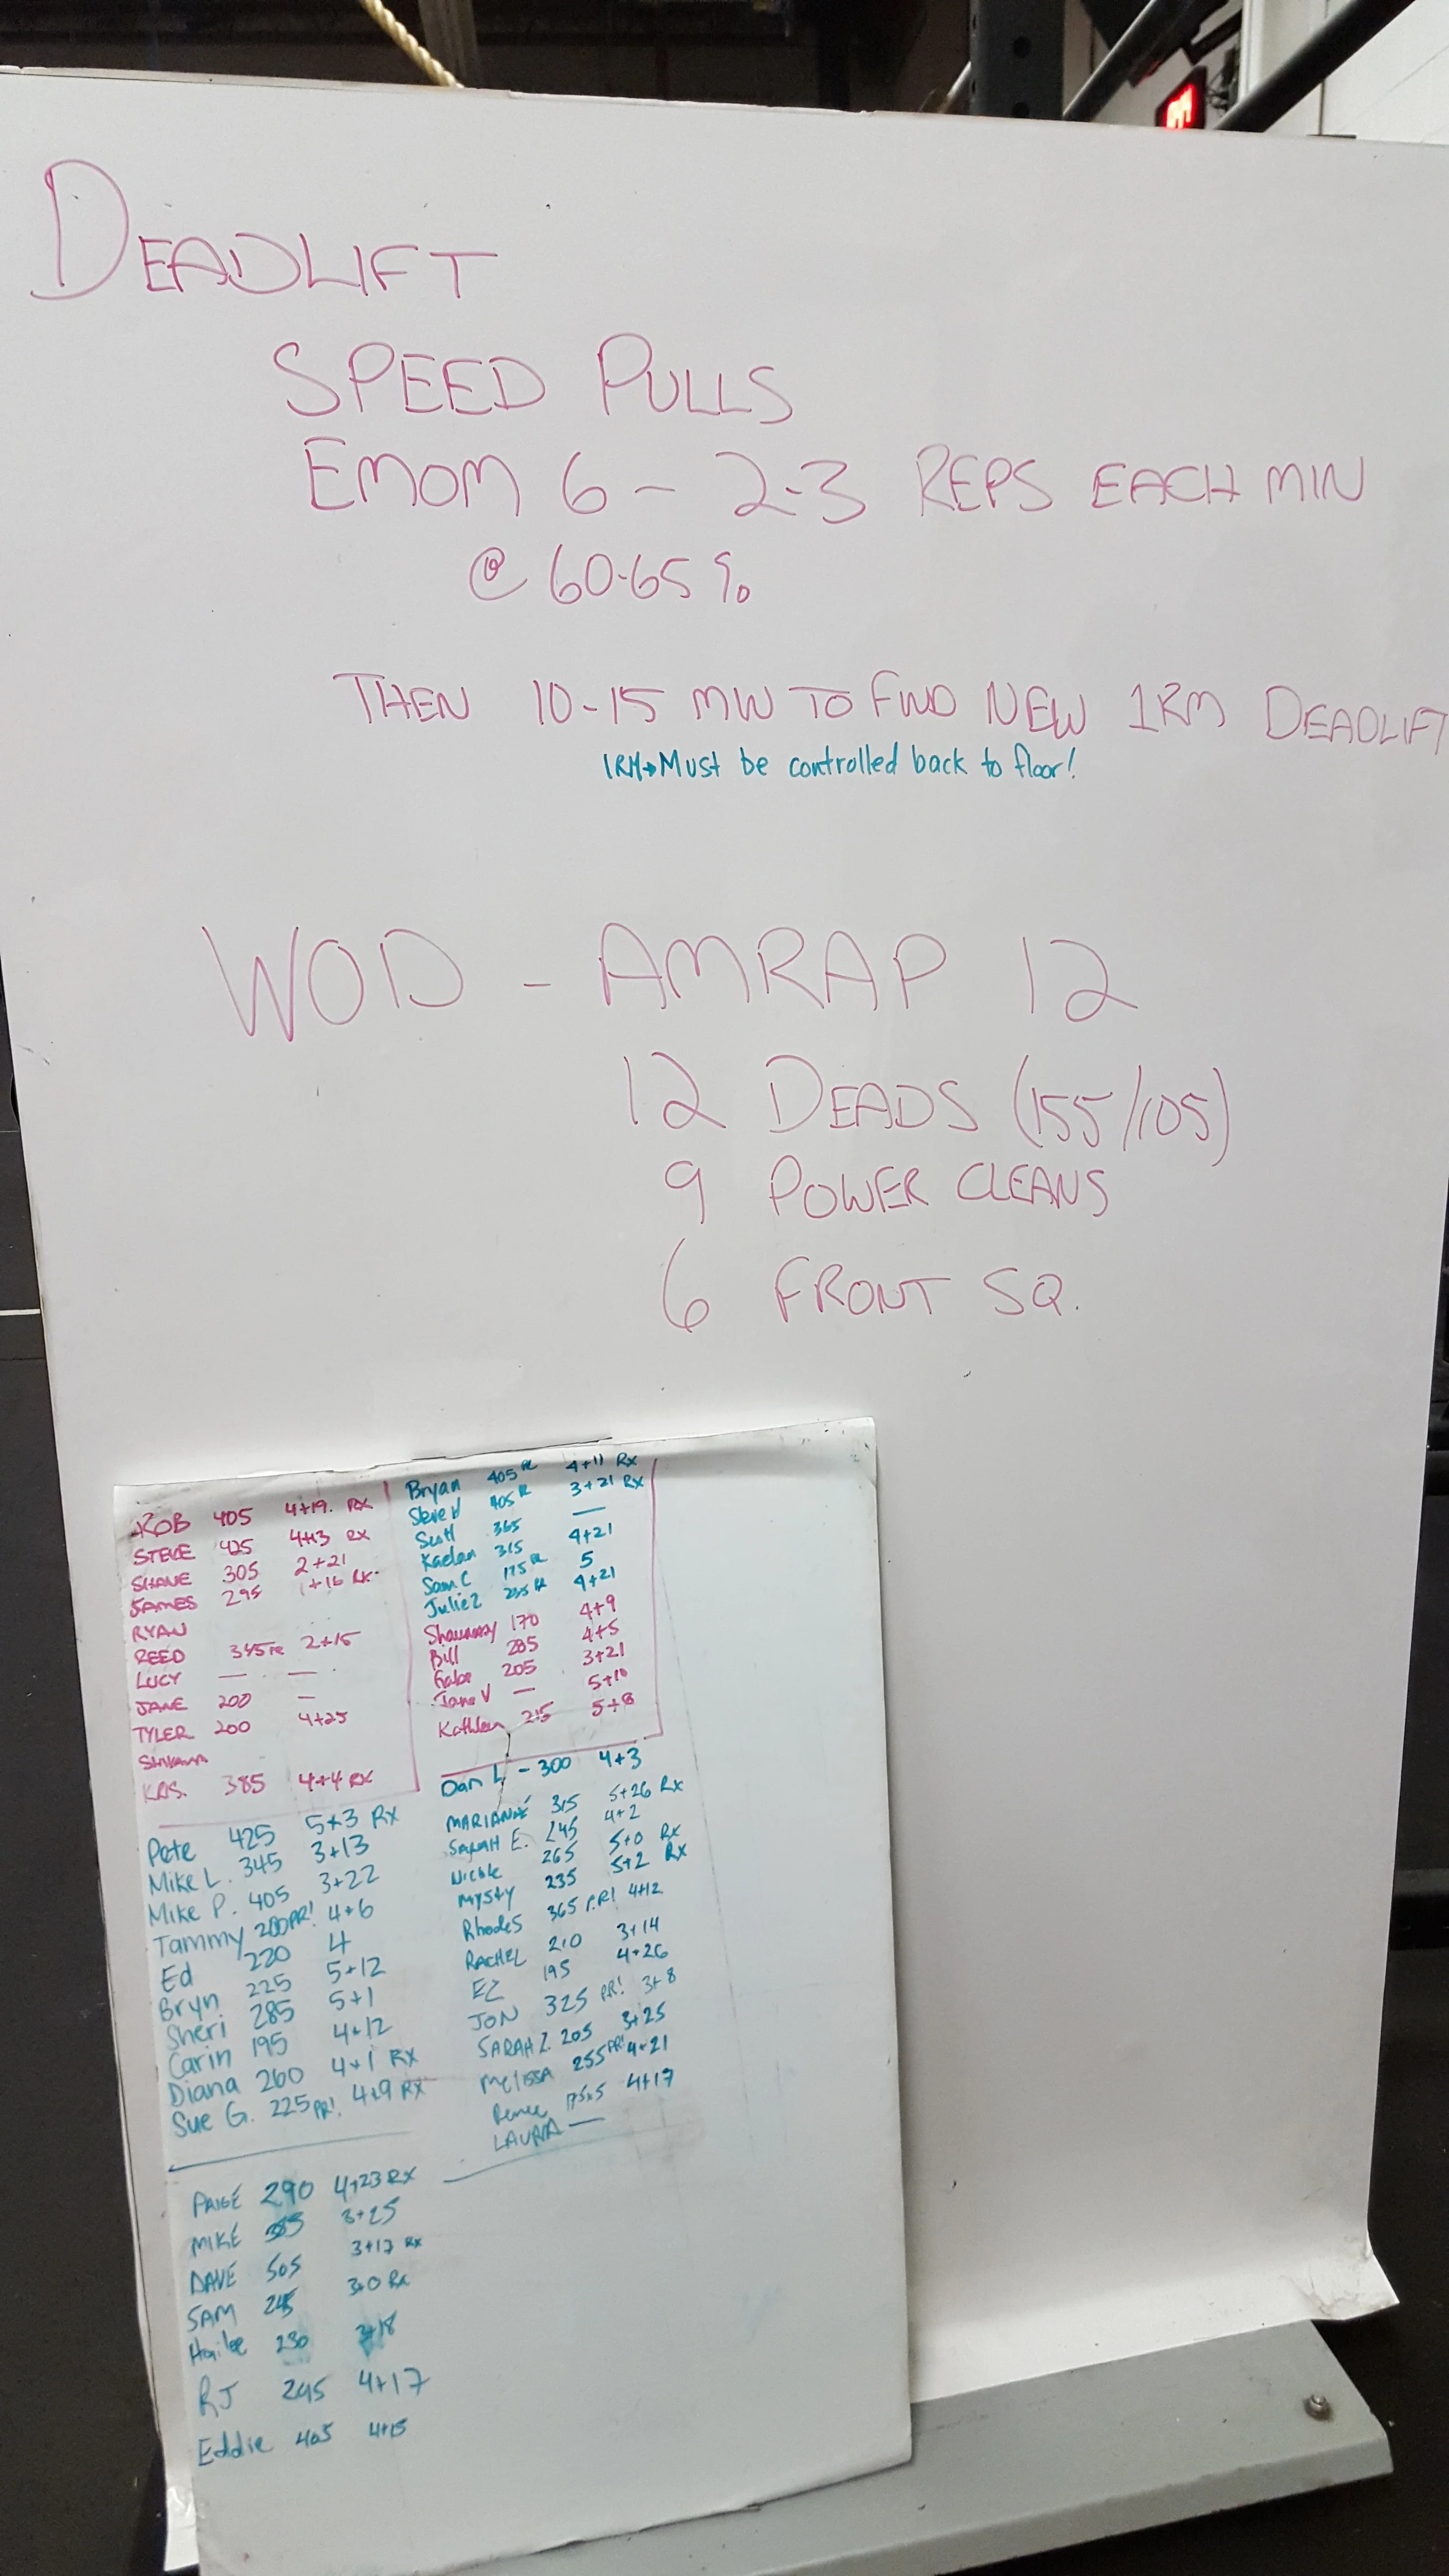 DEADLIFT
SPEED PULLS
EMOM 6 - 2-3 REPS EACH MIN
@ 60-65%
THEN 10-15 MIN TO FIND NEW 1RM DEADLIFT
1RM→Must be controlled back to floor!
WOD - AMRAP 12
12 DEADS (155/105)
9 POWER CLEANS
6 FRONT SQ.
ROB 405 4+19 RX
STEVE 425 4+13 RX
SHANE 305 2+21
JAMES 295 1+16 RX
RYAN
REED 345 2+15
LUCY — —
JANE 200 —
TYLER 200 4+25
KRIS. 385 4+4 RX
Bryan 405 4+11 Rx
Steve 405 3+21 Rx
Scott 365 —
Kaelan 315 4+21
Sam C 175 5
Julie 235 4+21
170 4+9
Bill 285 4+5
Gabe 205 3+21
Jane V — 5+10
Kathleen 215 5+8
Pete 425 5+3 Rx
Mike L. 345 3+13
Mike P. 405 3+22
Tammy 200 PR! 4+6
Ed 220 4
Bryn 225 5+12
Sheri 285 5+1
Carin 195 4+12
Diana 260 4+1 RX
Sue G. 225 PR! 4+9 RX
Dan L - 300 4+3
MARIANNE 315 5+26 Rx
SARAH E. 245 4+2
Nicole 265 5+0 Rx
Mysty 235 5+2 Rx
Rhodes 365 P.R! 4+12
RACHEL 210 3+14
EZ 195 4+26
JON 325 PR! 3+8
SARAH Z. 205 3+25
Melissa 255 PR! 4+21
Renee 175x5 4+17
LAURA —
PAIGE 290 4+23 RX
MIKE 3+25
DAVE 505 3+17 RX
SAM 245 3+0 Rx
Hailee 230 3+18
RJ 245 4+17
Eddie 405 4+15